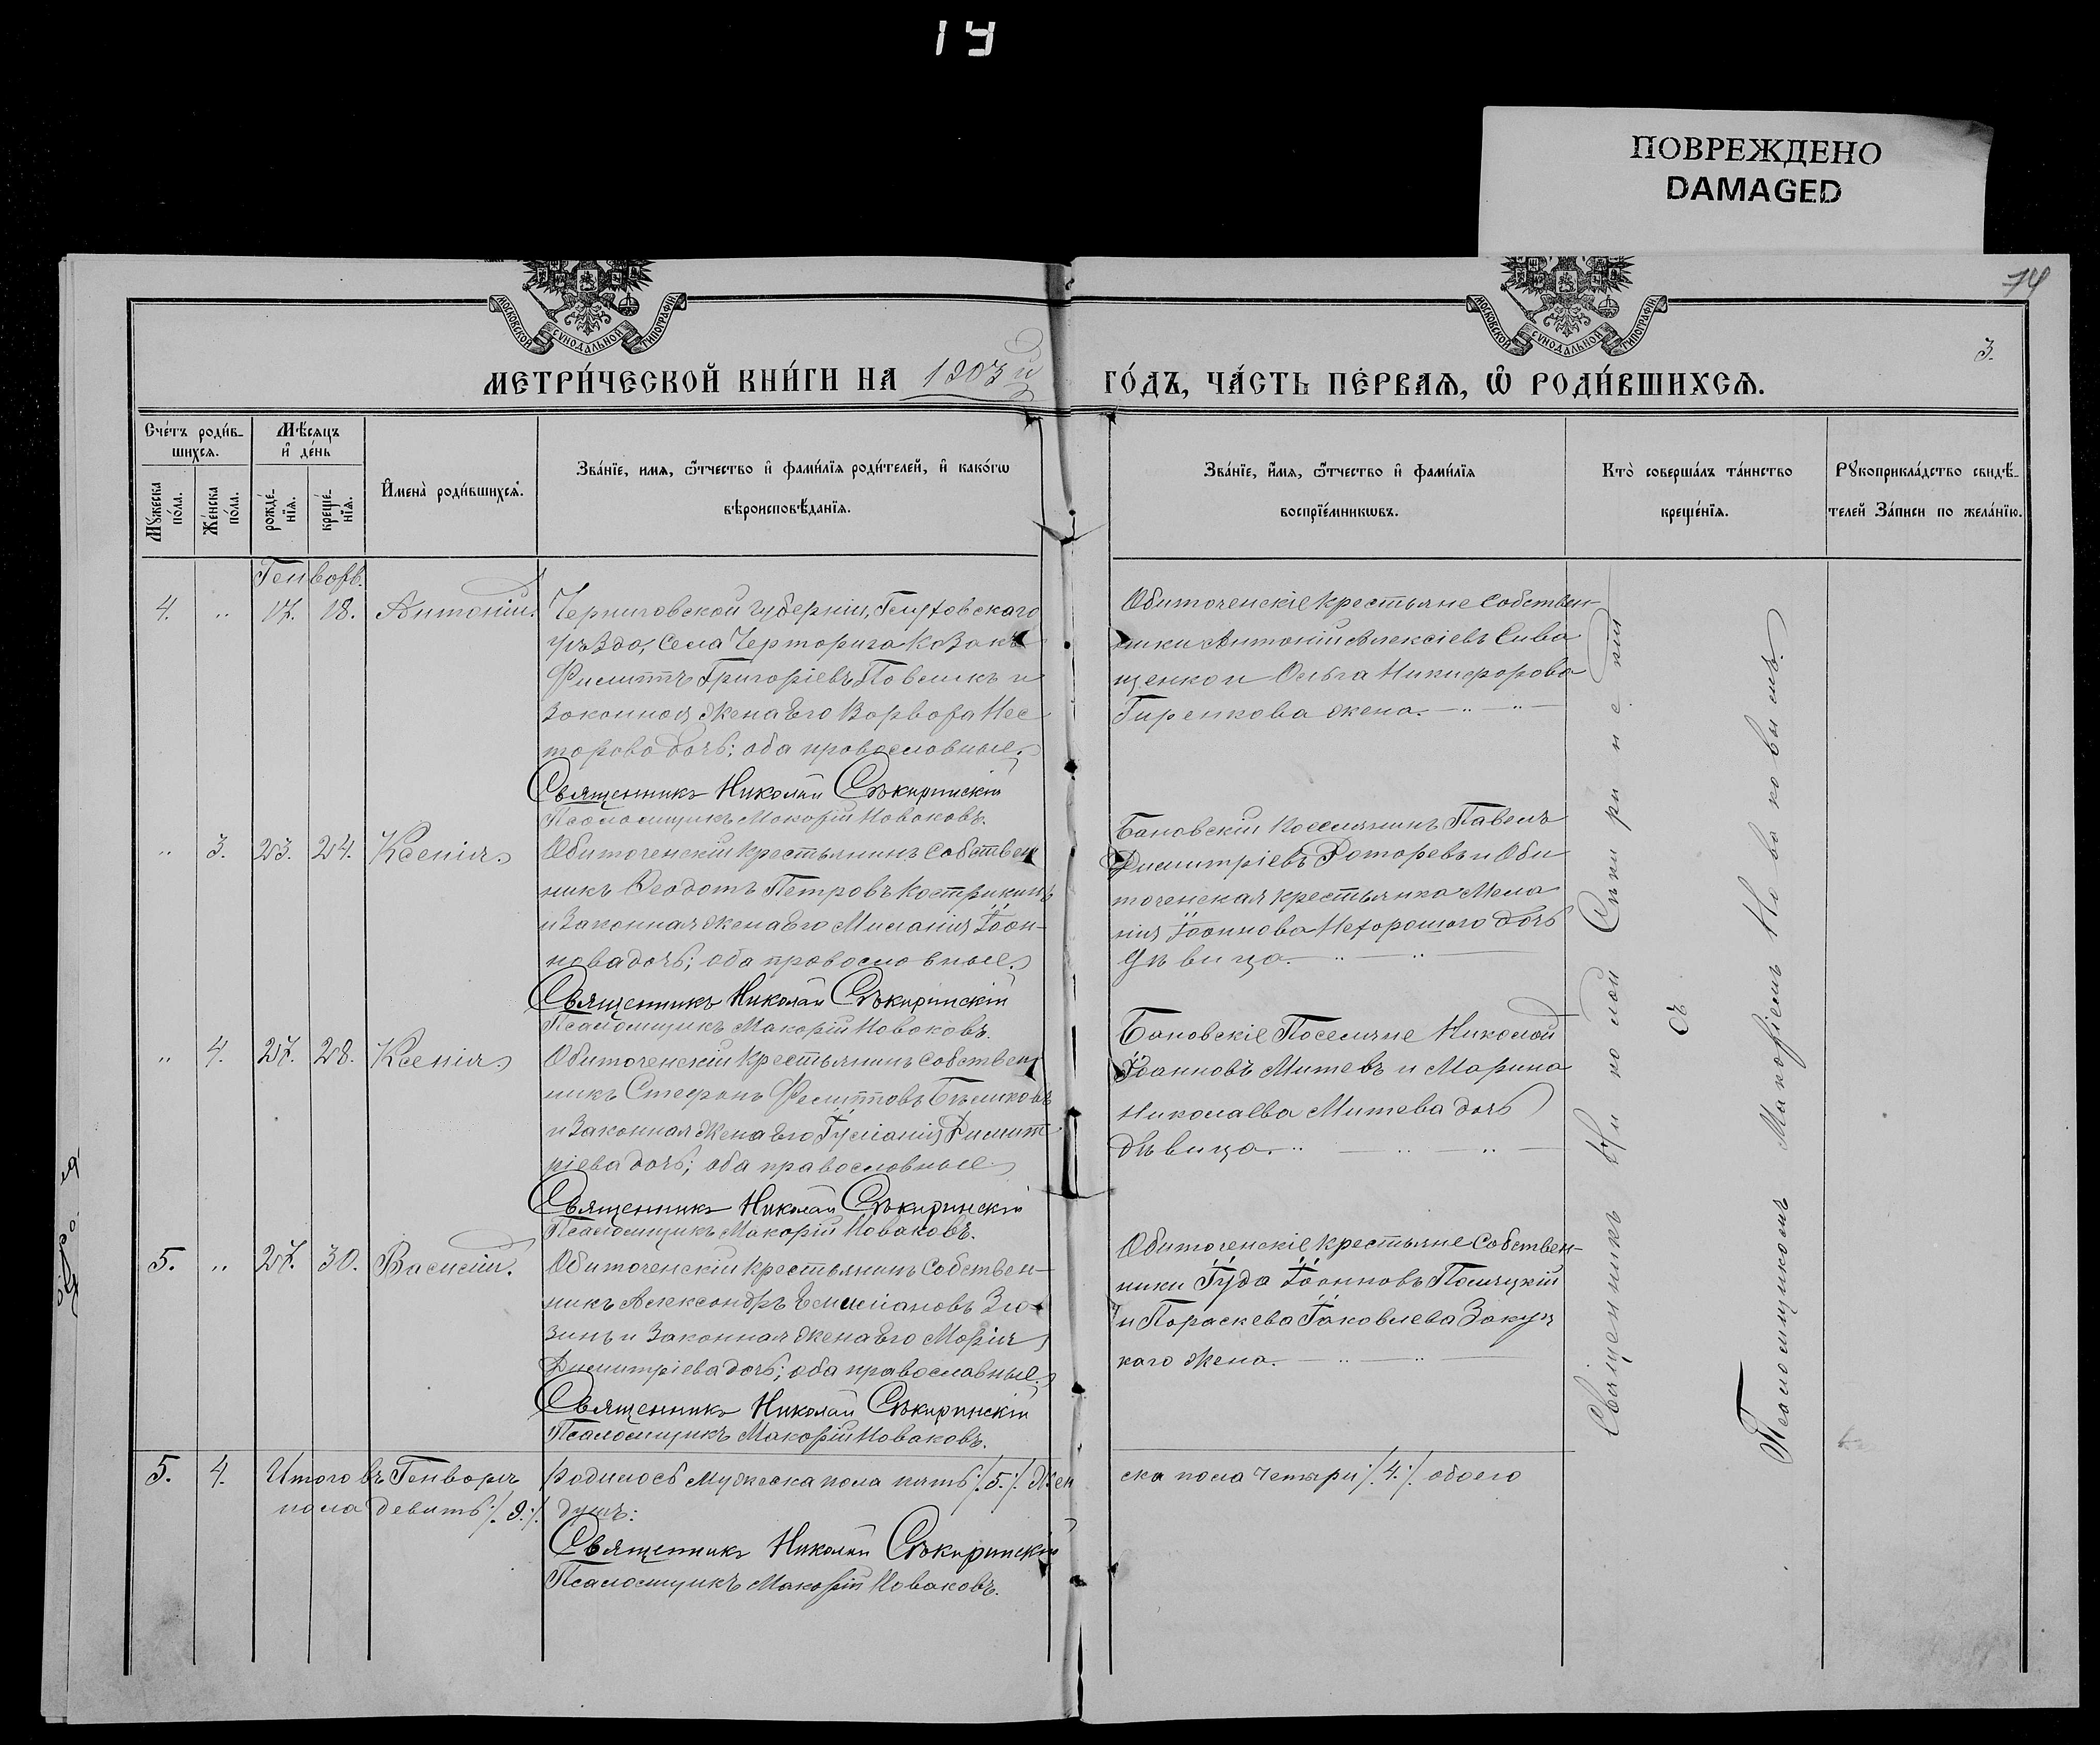 14
ПОВРЕЖДЕНО
DAMAGED
74
3.
МОСКОВСКОЙ СУНОДАЛЬНОЙ ТИПОГРАФІИ
МОСКОВСКОЙ СУНОДАЛЬНОЙ ТИПОГРАФІИ
МЕТРИ́ЧЕСКОЙ КНИ́ГИ НА 1903й ГО́ДЪ, ЧА́СТЬ ПЕ́РВАѦ, Ѿ РОДИ́ВШИХСѦ.
Сче́тъ роди́в-
шихсѧ.
Мꙋжеска по́ла.
Же́нска по́ла.
Мѣ́сѧцъ
и҆ де́нь
рожде́-нїѧ.
креще́-нїѧ.
И҆мена̀ роди́вшихсѧ.
Зва́нїе, имѧ, ѻ҆́тчество и҆ фами́лїѧ роди́телей, и҆ како́гѡ
вѣроисповѣ́данїѧ.
Зва́нїе, и҆́мѧ, ѻ҆́тчество и҆ фами́лїѧ
воспрїе́мникѡвъ.
Кто̀ соверша́лъ та́инство
креще́нїѧ.
Рꙋкоприкла́дство свидѣ́-
телей За́писи по жела́нїю.
Генварь.
4. „ 17. 18. Антоній. Черниговской губерніи, Глуховского
уѣзда, села Черторига козакъ
Филиппъ Григоріевъ Повсикъ и
законная жена его Варвара Нес
торова дочь; оба православные.
Священникъ Николай Сѣкиринскій
Псаломщикъ Макарій Новаковъ.
Обиточенскіе крестьяне собствен-
ники Антоній Алексіевъ Сива
щенко и Ольга Никифорова
Гиренкова жена. — „ — „ —
„ 3. 23. 24. Ксенія. Обиточенскій крестьянинъ собствен
никъ Ѳеодотъ Петровъ Кострикинъ
и законная жена его Миланія Іоан-
нова дочь; оба православные.
Священникъ Николай Сѣкиринскій
Псаломщикъ Макарій Новаковъ.
Бановскій поселянинъ Павелъ
Димитріевъ Ротаревъ и Оби
точенская крестьянка Мела
нія Іоаннова Нехорошаго дочь
дѣвица. — „ — „ —
„ 4. 27. 28. Ксенія. Обиточенскій крестьянинъ собствен
никъ Стефанъ Филипповъ Бѣликовъ
и законная жена его Іуліанія Димит
ріева дочь; оба православные.
Священникъ Николай Сѣкиринскій
Псаломщикъ Макарій Новаковъ.
Бановскіе Поселяне Николай
Іоанновъ Митевъ и Марина
Николаева Митева дочь
дѣвица. „ — „ — „ —
5. „ 27. 30. Василій. Обиточенскій крестьянинъ собствен-
никъ Александръ Емиліановъ Зю-
зинъ и законная жена его Марія
Димитріева дочь; оба православные.
Священникъ Николай Сѣкиринскій
Псаломщикъ Макарій Новаковъ.
Обиточенскіе крестьяне собствен-
ники Іуда Іоанновъ Полуцкій
и Параскева Іаковлева Закуц
каго жена. — „ — „ —
Священникъ Николай Сѣкиринскій
съ
Псаломщикомъ Макаріемъ Новаковымъ.
5. 4. Итого въ Генварѣ родилось мужеска пола пять ./.5./. жен
ска пола четыри ./.4./. обоего
пола девять ./.9./. душъ:
Священникъ Николай Сѣкиринскій
Псаломщикъ Макарій Новаковъ.